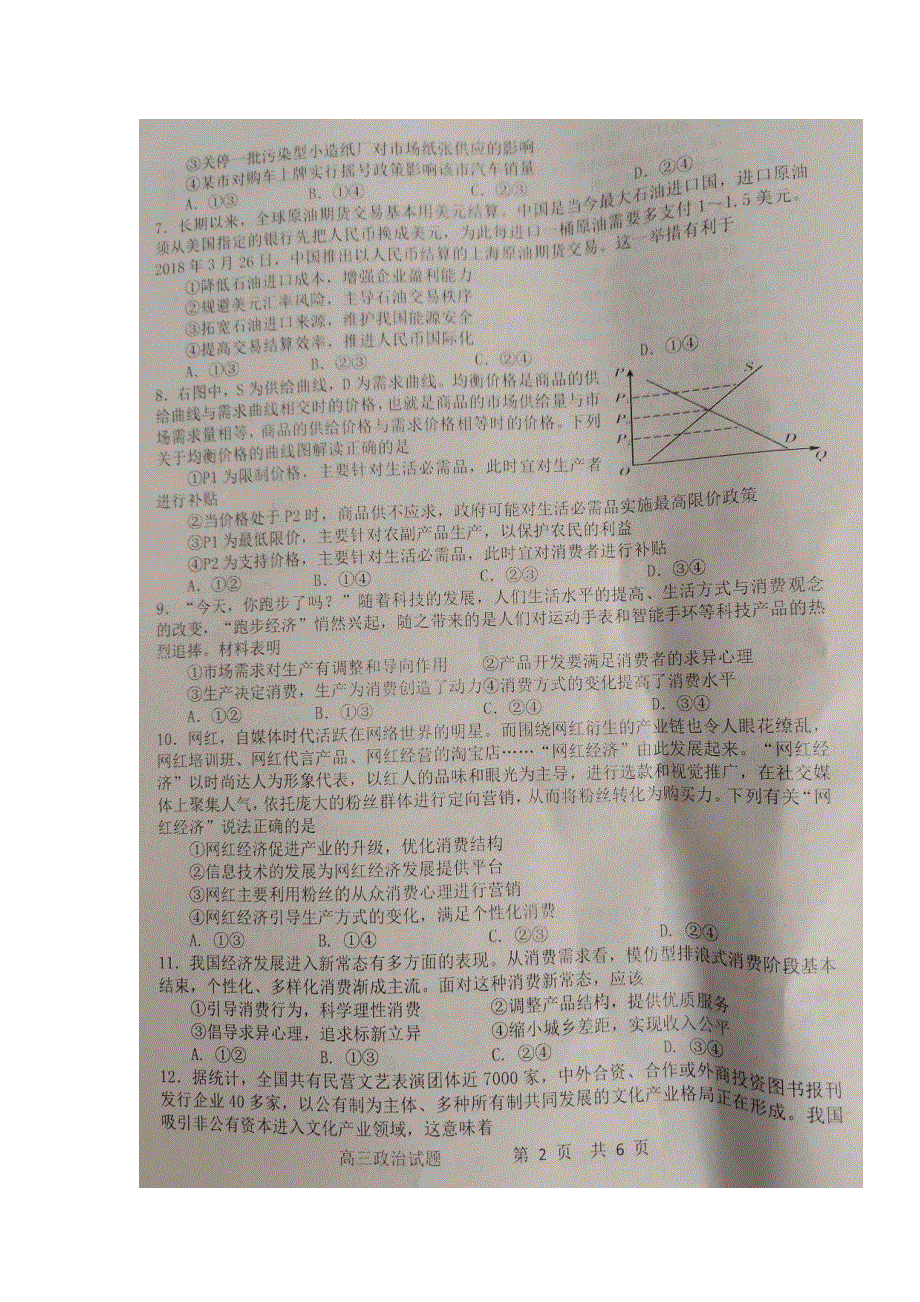 ③关停一批污染型小造纸厂对市场纸张供应的影响
④某市对购车上牌实行摇号政策影响该市汽车销量
A. ①③ B. ①④ C. ②③ D. ②④
7. 长期以来，全球原油期货交易基本用美元结算。中国是当今最大石油进口国，进口原油
须从美国指定的银行先把人民币换成美元，为此每进口一桶原油需要多支付 1～1.5 美元。
2018 年 3 月 26 日，中国推出以人民币结算的上海原油期货交易。这一举措有利于
①降低石油进口成本，增强企业盈利能力
②规避美元汇率风险，主导石油交易秩序
③拓宽石油进口来源，维护我国能源安全
④提高交易结算效率，推进人民币国际化
A. ①③ B. ②③ C. ②④ D. ①④
8. 右图中，S 为供给曲线，D 为需求曲线。均衡价格是商品的供
给曲线与需求曲线相交时的价格，也就是商品的市场供给量与市
场需求量相等，商品的供给价格与需求价格相等时的价格。下列
关于均衡价格的曲线图解读正确的是
P S
P
P
P D
O Q
①P1 为限制价格，主要针对生活必需品，此时宜对生产者
进行补贴
②当价格处于 P2 时，商品供不应求，政府可能对生活必需品实施最高限价政策
③P1 为最低限价，主要针对农副产品生产，以保护农民的利益
④P2 为支持价格，主要针对生活必需品，此时宜对消费者进行补贴
A. ①② B. ①④ C. ②③ D. ③④
9. “今天，你跑步了吗？”随着科技的发展，人们生活水平的提高、生活方式与消费观念
的改变，“跑步经济”悄然兴起，随之带来的是人们对运动手表和智能手环等科技产品的热
烈追捧。材料表明
①市场需求对生产有调整和导向作用 ②产品开发要满足消费者的求异心理
③生产决定消费，生产为消费创造了动力④消费方式的变化提高了消费水平
A. ①② B. ①③ C. ②④ D. ③④
10. 网红，自媒体时代活跃在网络世界的明星。而围绕网红衍生的产业链也令人眼花缭乱，
网红培训班、网红代言产品、网红经营的淘宝店……“网红经济”由此发展起来。“网红经
济”以时尚达人为形象代表，以红人的品味和眼光为主导，进行选款和视觉推广，在社交媒
体上聚集人气，依托庞大的粉丝群体进行定向营销，从而将粉丝转化为购买力。下列有关“网
红经济”说法正确的是
①网红经济促进产业的升级，优化消费结构
②信息技术的发展为网红经济发展提供平台
③网红主要利用粉丝的从众消费心理进行营销
④网红经济引导生产方式的变化，满足个性化消费
A. ①③ B. ①④ C. ②③ D. ②④
11. 我国经济发展进入新常态有多方面的表现。从消费需求看，模仿型排浪式消费阶段基本
结束，个性化、多样化消费渐成主流。面对这种消费新常态，应该
①引导消费行为，科学理性消费 ②调整产品结构，提供优质服务
③倡导求异心理，追求标新立异 ④缩小城乡差距，实现收入公平
A. ①② B. ①③ C. ②④ D. ③④
12. 据统计，全国共有民营文艺表演团体近 7000 家，中外合资、合作或外商投资图书报刊
发行企业 40 多家，以公有制为主体、多种所有制共同发展的文化产业格局正在形成。我国
吸引非公有资本进入文化产业领域，这意味着
高三政治试题 第 2 页 共 6 页